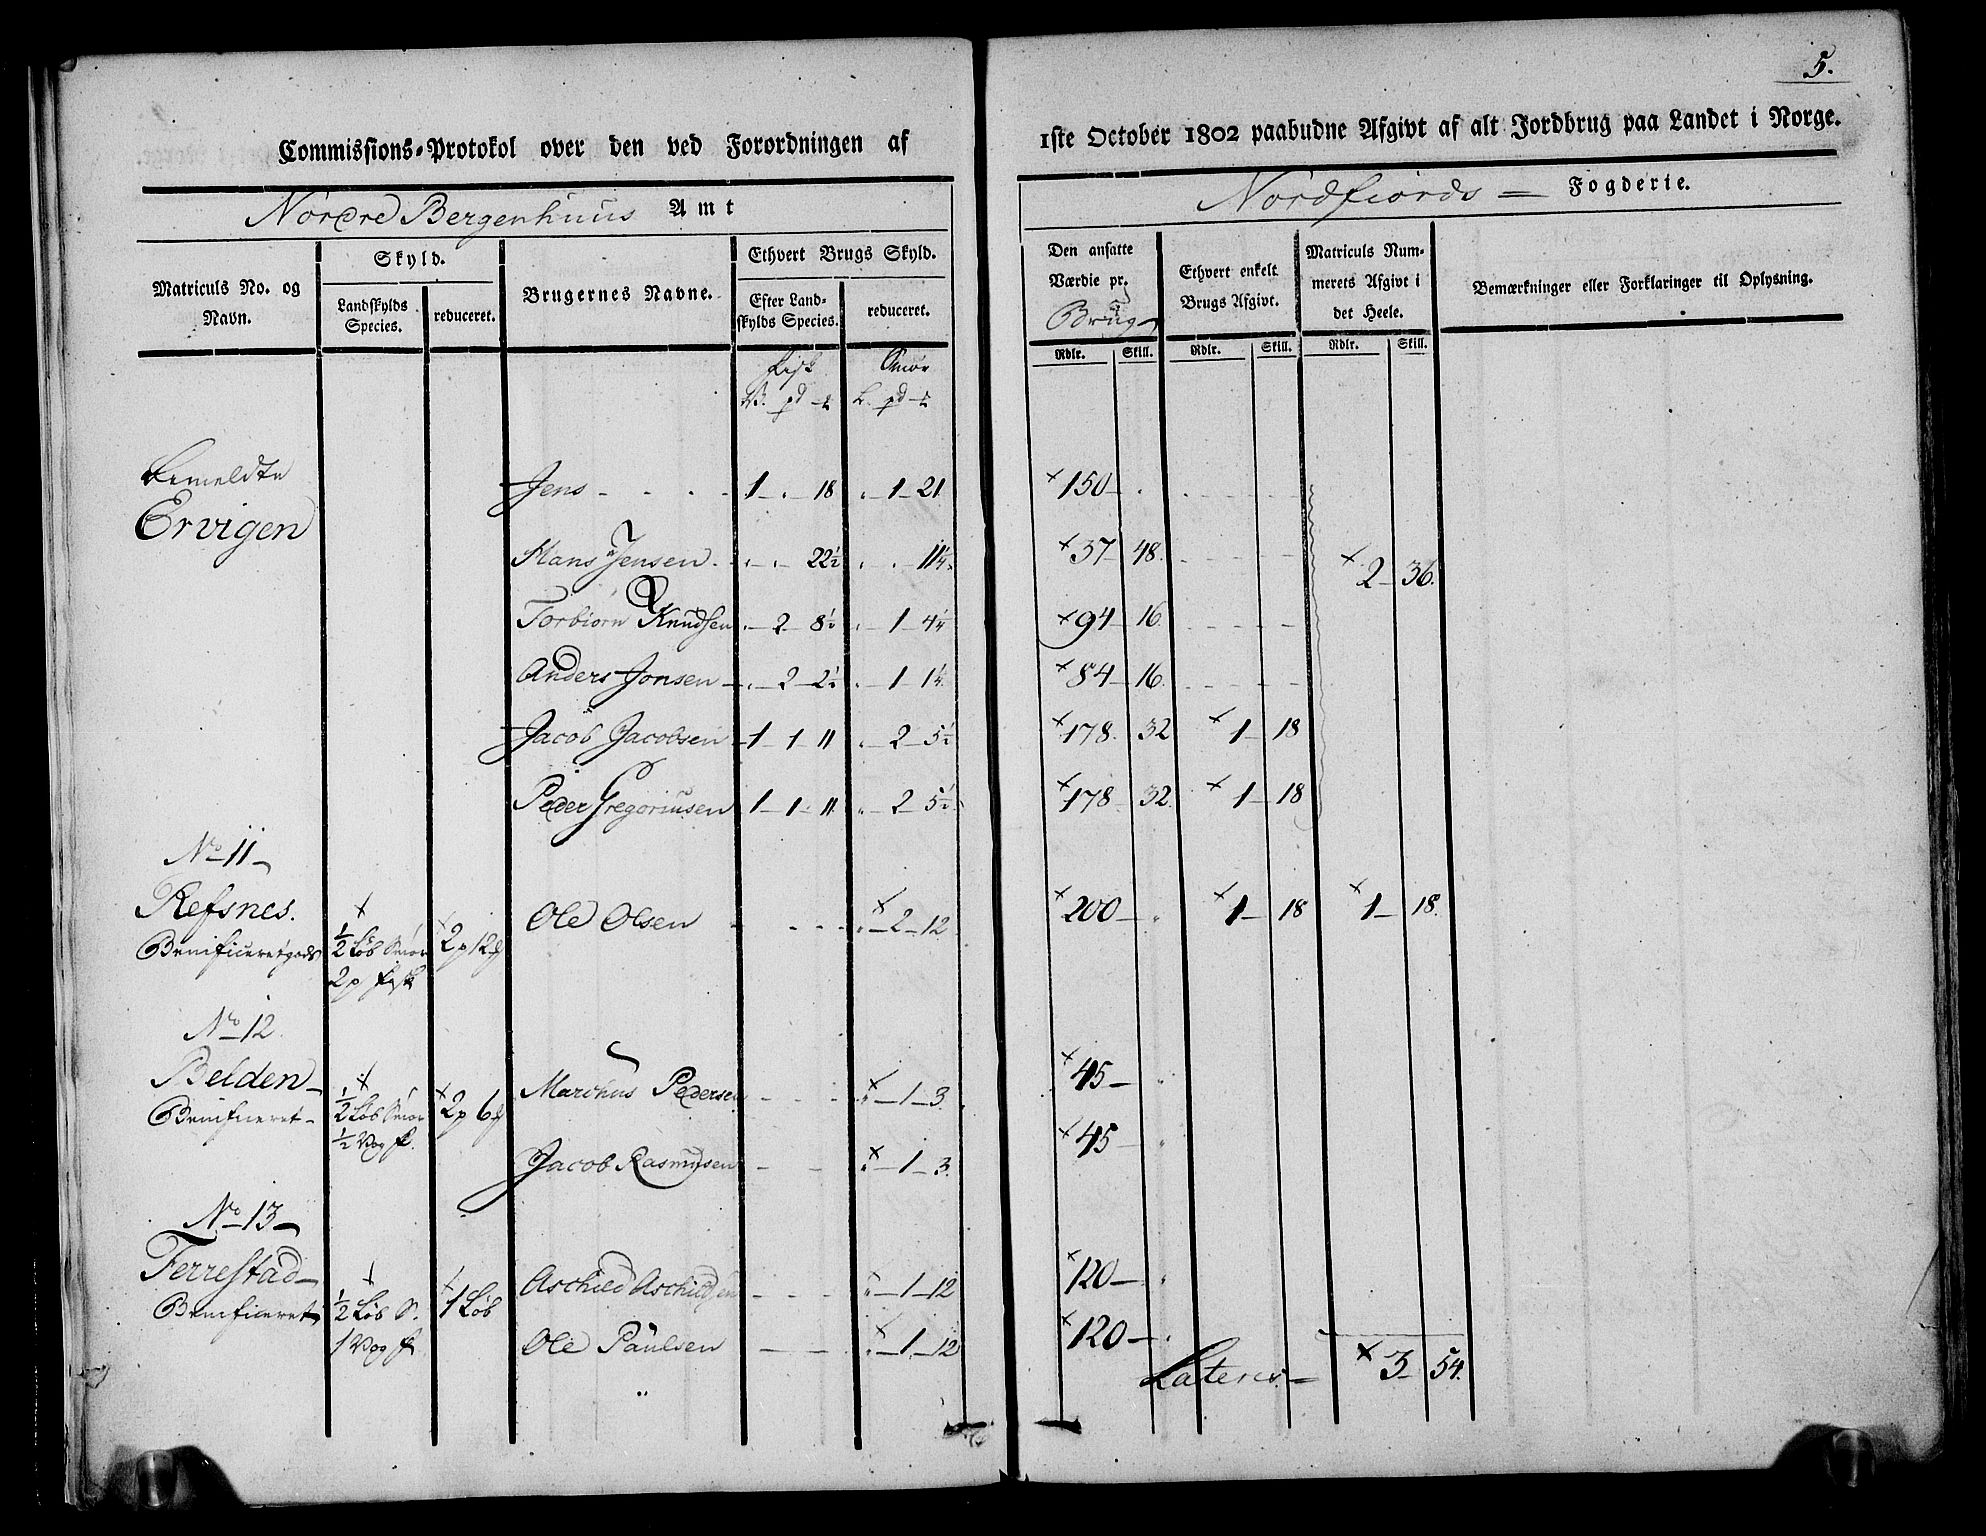 5.
Commissions-Protokol over den ved Forordningen af 1ste October 1802 paabudne Afgivt af alt Jordbrug paa Landet i Norge.
Nordre Bergenhuus Amt Nordfiords — Fogderie.
Matriculs No. og Navn.
Skyld.
Landskylds Species.
reduceret.
Brugernes Navne.
Ethvert Brugs Skyld.
Efter Landskylds Species.
reduceret.
Den ansatte Værdie pr. Brug
Ethvert enkelt Brugs Afgivt.
Matriculs Nummerets Afgivt i det Heele.
Bemærkninger eller Forklaringer til Oplysning.
Fisk Smør Rdlr. Skill. Rdlr. Skill. Rdlr. Skill.
V. pd L. pd
Bemeldte Jens - - - 1 - " - 18 " - 1 - 21 × 150 - "
Ervigen
Hans Jensen. " - " - 22½ " - " 11¼ × 37 - 48. × 2 - 36.
Torbiorn Knudsen " - 2 - 8½ " - 1 - 4¼ × 94 - 16
Anders Jonsen - " - 2 - 2½ " - 1 - 1¼ × 84 - 16
Jacob Jacobsen - 1 - 1 - 11 " - 2 - 5½ × 178. 32 × 1 - 18
Peder Gregoriusen 1 - 1 - 11 " - 2 - 5½ × 178 - 32. × 1 - 18
No 11 -
Refsnes. × Ole Olsen - - - × " - 2 - 12 × 200 - " × 1 - 18 × 1 - 18.
Benificeret gods ½ Løb Smør × 2 p 12
2 p fisk
No 12
Belden - × Marchus Pedersen - - - × " - 1 - 3. × 45 - "
Benificeret - ½ Løb Smør × 2 p 6
½ Vog f.
Jacob Rasmusen - - × " - 1 - 3. × 45 - "
No 13 -
Ferrestad - × Aschild Aschildsen - - - × " - 1 - 12 × 120 - "
Benificeret ½ Løb S. × 1 Løb
1 Vog f. Ole Paulsen - - × " - 1 - 12 × 120 - "
Lateris - × 3 - 54.